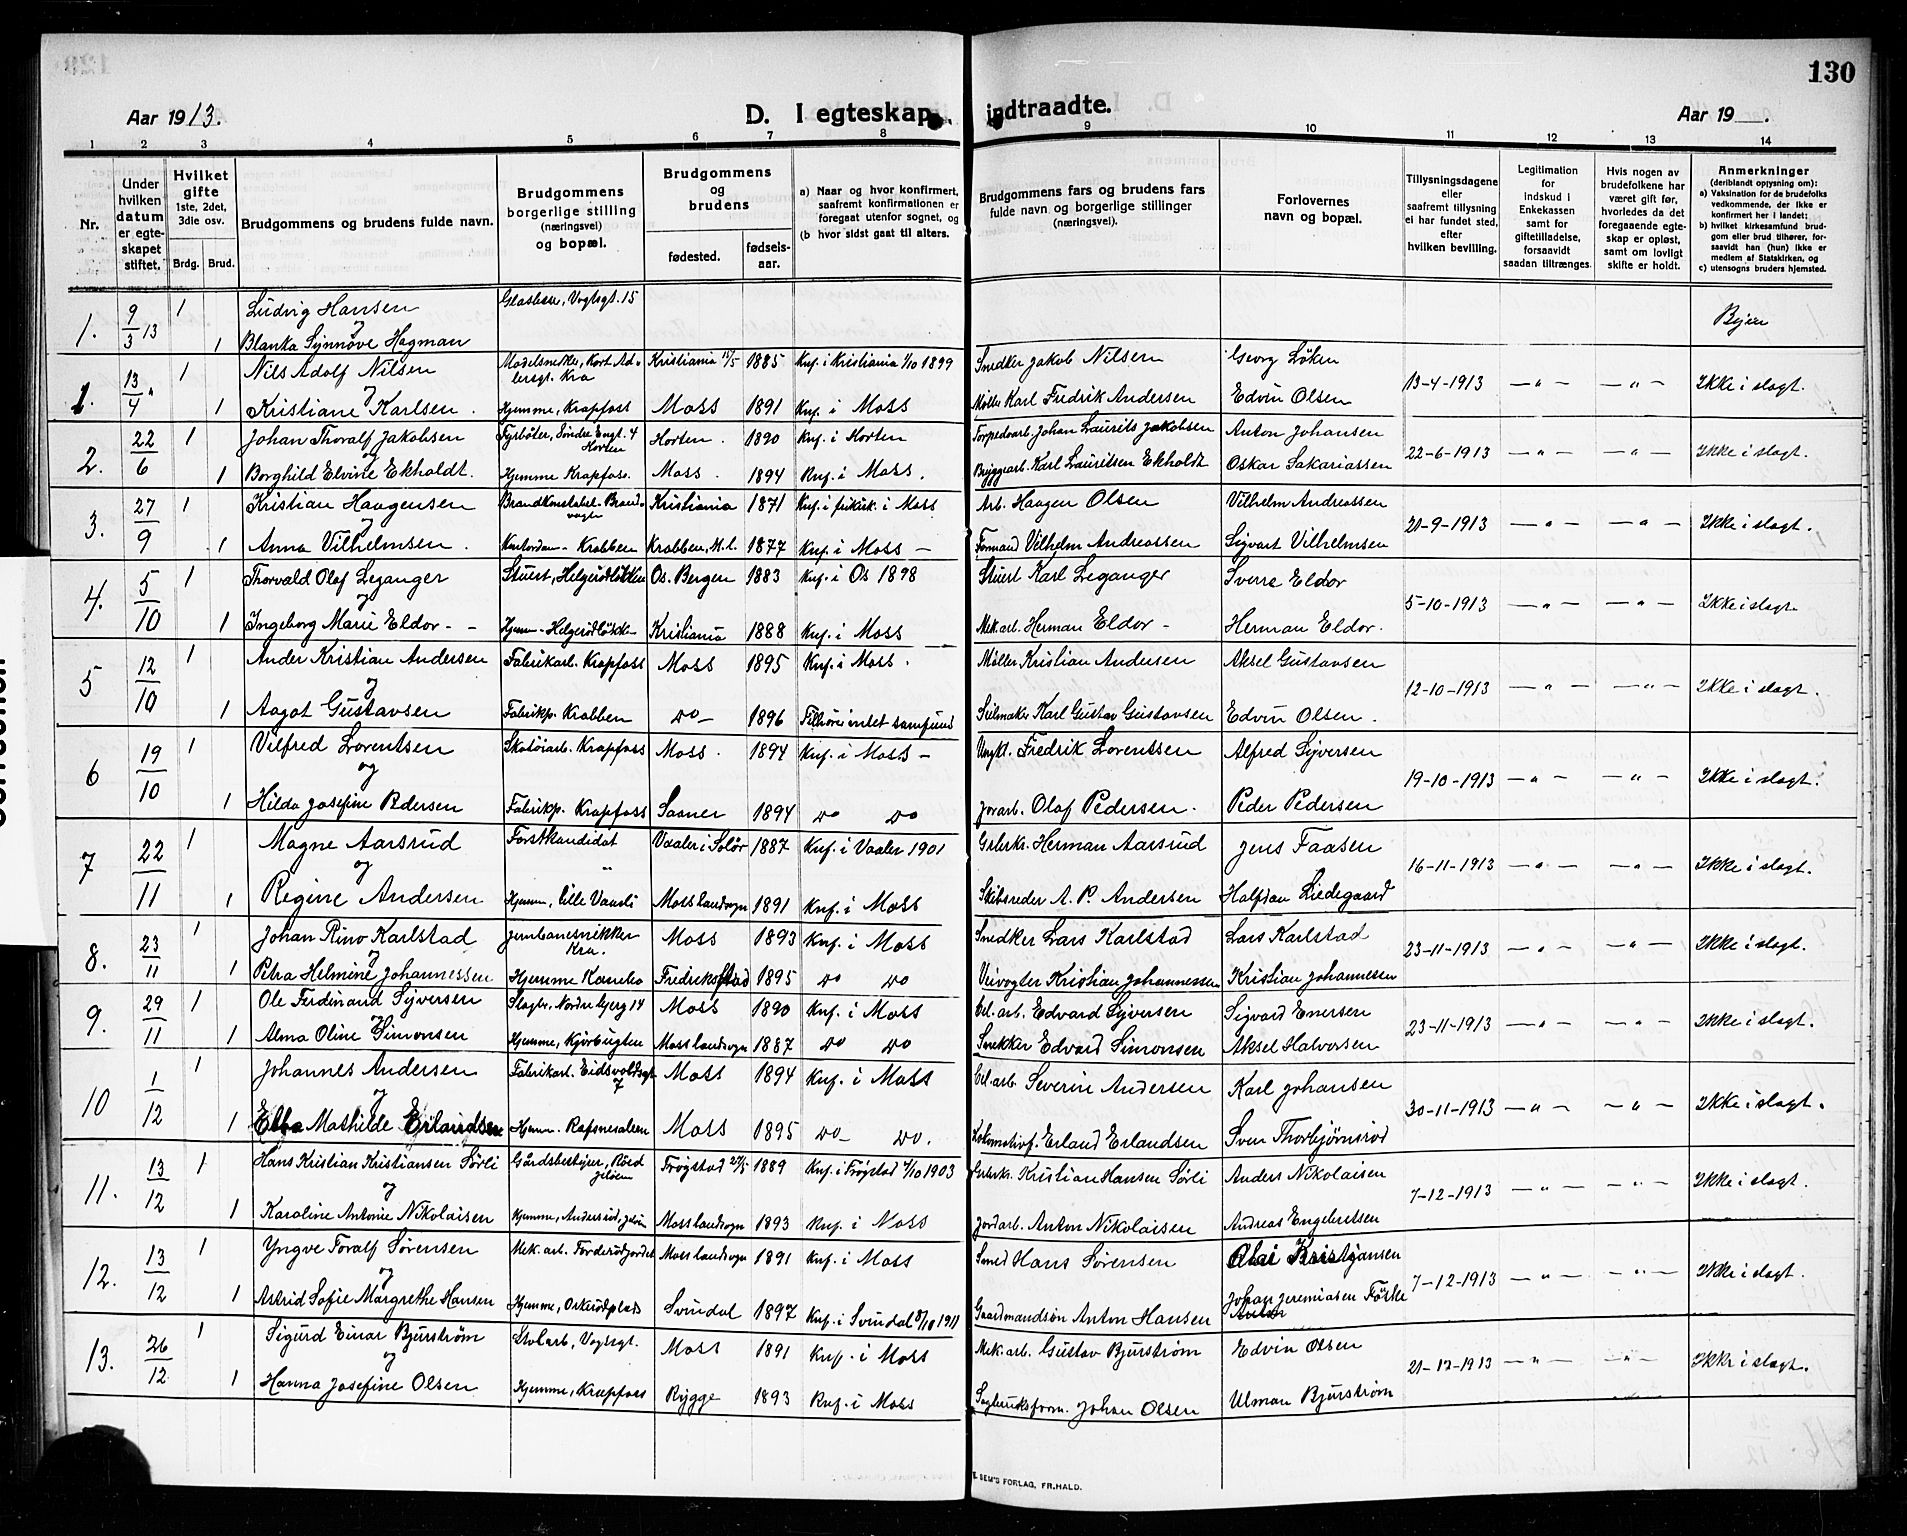 130
Aar 1913.
D. I egteskap indtraadte.
Aar 19 .
1 2 3 4 5 6 7 8 9 10 11 12 13 14
Nr.
Under hvilken datum er egteskapet stiftet.
Hvilket gifte 1ste, 2det, 3die osv.
Brdg. Brud.
Brudgommens og brudens fulde navn.
Brudgommens borgerlige stilling (næringsvei) og bopæl.
Brudgommens og brudens
fødested. fødselsaar.
a) Naar og hvor konfirmert, saafremt konfirmationen er foregaat utenfor sognet, og
(b hvor sidst gaat til alters.
Brudgommens fars og brudens fars fulde navn og borgerlige stillinger (næringsvei).
Forlovernes navn og bopæl.
Tillysningsdagene eller saafremt tillysning ei har fundet sted, efter hvilken bevilling.
Legitimation for indskud i Enkekassen samt for giftetilladelse, forsaavidt saadan tiltrænges.
Hvis nogen av brudefolkene har været gift før, hvorledes da det foregaaende egteskap er opløst, samt om lovligt skifte er holdt.
Anmerkninger (deriblandt oplysning om): a) Vaksination for de brudefolks vedkommende, der ikke er konfirmert her i landet; b) hvilket kirkesamfund brudgom eller brud tilhører, forsaavidt han (hun) ikke er medlem af Statskirken, og c) utensogns bruders hjemsted.
1. 9/3 13 1 Ludvig Hansen Glasbær, Vogtsgt. 15
og
1 Blanka Synnøve Hagman Byen
1. 13/4 " 1 Nils Adolf Nilsen Modelsnekker, Kort Adelersgt. Kra Kristiania 15/5 1885 Knf. i Kristiania 1/10 1899 Snedker Jakob Nilsen Georg Löken
og 13-4-1913 — " — — " — Ikke i slagt.
1 Kristiane Karlsen. Hjemme, Krapfoss Moss 1891 Knf. i Moss Møller Karl Fredrik Andersen Edvin Olsen
2. 22/6 1 Johan Thoralf Jakobsen Fyrbøter, Søndre Engt. 4 Horten Horten. 1890 Knf. i Horten Torpedoarb. Johan Laurits Jakobsen Anton Johansen
og 22-6-1913 — " — — " — Ikke i slagt.
1 Borghild Elvine Ekholdt. Hjemme Krapfoss. Moss. 1894 Knf. i Moss. Bryggearb. Karl Lauritsen Ekholdt Oskar Sakariassen
3. 27/9 1 Kristian Haagensen Brandkonstabel. Brandvagten Kristiania 1871 Knf. i frikirk. i Moss Arb. Haagen Olsen Vilhelm Andreassen
og 21-9-1913 — " — — " — Ikke i slagt.
1 Anna Vilhelmsen. Kontordam - Krabben Krabben, M.l. 1877 Knf. i Moss — Formand Vilhelm Andreassen Sigvart Vilhelmsen
4. 5/10 1 Thorvald Olaf Leganger Stuert, Helgerødløkken Os. Bergen 1883 Knf. i Os 1898 Stuert Karl Leganger Sverre Eldor
og 5-10-1913 — " — — " — Ikke i slagt.
1 Ingeborg Marie Eldor - - Hjemm - Helgerødløkken Kristiania 1888 Knf. i Moss Mek.arb. Herman Eldor - Herman Eldor.
5 12/10 1 Ander Kristian Andersen Fabrikarb. Krapfoss Moss 1895 Knf. i Moss. Møller Kristian Andersen Aksel Gustavsen
og 12-10-1913 — " — — " — Ikke i slagt.
1 Aagot Gustavsen Fabrikp. Krabben do - 1896 Tilhører intet samfund Seilmaker Karl Gustav Gustavsen Edvin Olsen.
6 19/10 1 Vilfred Lorentsen Skotøiarb. Krapfoss Moss. 1894 Knf. i Moss — Fredrik Lorentsen Alfred Syversen
og 19-10-1913 — " — — " — Ikke i slagt.
1 Hilda Josefine Pedersen Fabrikp. Krapfoss Saaner 1894 do do Jordarb. Olaf Pedersen. Peder Pedersen
7 22/11 1 Magne Aarsrud Forstkandidat Vaaler i Solør 1887 Knf. i Vaaler 1901 Grbrks. Herman Aarsrud Jens Faasen
og " 16-11-1913 — " — — " — Ikke i slagt.
1 Regine Andersen Hjemm, Lille Vansli Moss landsogn 1891 Knf. i Moss Skibsreder A. P. Andersen Halfdan Liedegaard
8. 23/11 1 Johan Rino Karlstad Jernbanesnikker Kra. Moss 1893 Knf. i Moss Snedker Lars Karlstad Lars Karlstad
og 23-11-1913 — " — — " — Ikke i slagt.
1 Petra Helmine Johannessen Hjemme Kambo Fredriksstad 1895 do do Veivogter Kristian Johannessen Kristian Johannessen
9. 29/11 1 Ole Ferdinand Syversen Slagter. Nordre bjerg 14 Moss 1890 Knf. i Moss Cel. arb. Edvard Syversen Sigvard Enersen
og 23-11-1913 — " — — " — Ikke i slagt.
1 Alma Oline Simonsen Hjemme, Kjørbugten Moss landsogn 1887 do do Snekker Edvard Simonsen Aksel Halvorsen
10 1/12 1 Johannes Andersen Fabrikarb. Eidsvoldsgt 7 Moss 1894 Knf. i Moss Cel. arb. Severin Andersen Karl Johansen
og 30-11-1913 — " — — " — Ikke i slagt.
1 Ebba Mathilde Erlandsen Hjemm - Rafsnesaleen Moss 1895 do - do. Lokomotivf. Erland Erlandsen Sven Thorbjørnsrød
11. 13/12 1 Hans Kristian Kristiansen Sørli Gårdsbestyrer, Røed Jeløen Trøgstad 27/5 1889 Knf. i Trøgstad 4/10 1903 Grbrks. Kristian Hansen Sørli Anders Nikolaisen
og 7-12-1913 — " — — " — Ikke i slagt.
1 Karoline Antonie Nikolaisen Hjemme, Andersrød, Jeløen Moss landsogn 1893 Knf. i Moss Jordarb. Anton Nikolaisen Andreas Engebretsen
12. 13/12 1 Yngve Toralf Sørensen Mek. arb. Forderødjordet Moss landsogn 1891 Knf. i Moss Smed Hans Sørensen Olai Kristjansen
og 7-12-1913 — " — — " — Ikke i slagt.
1 Astrid Sofie Margrethe Hansen Hjemme, Orkerødplads Svindal 1897 Knf. i Svindal 8/10 1911 Gaardmandsøn Anton Hansen Johan Jeremiasen Föske
13. 26/12 1 Sigurd Einar Bjurstrøm Stolarb, Vogtsgt. Moss 1891 Knf. i Moss Mek. arb. Gustav Bjurstrøm Edvin Olsen
og 21-12-1913 — " — — " — Ikke i slagt.
1 Hanna Josefine Olsen Hjemme, Krapfoss Rygge 1893 Knf. i Moss Sagbruksform. Johan Olsen Ulman Bjurstrøm
E. SEM'S FORLAG, FR.HALD.